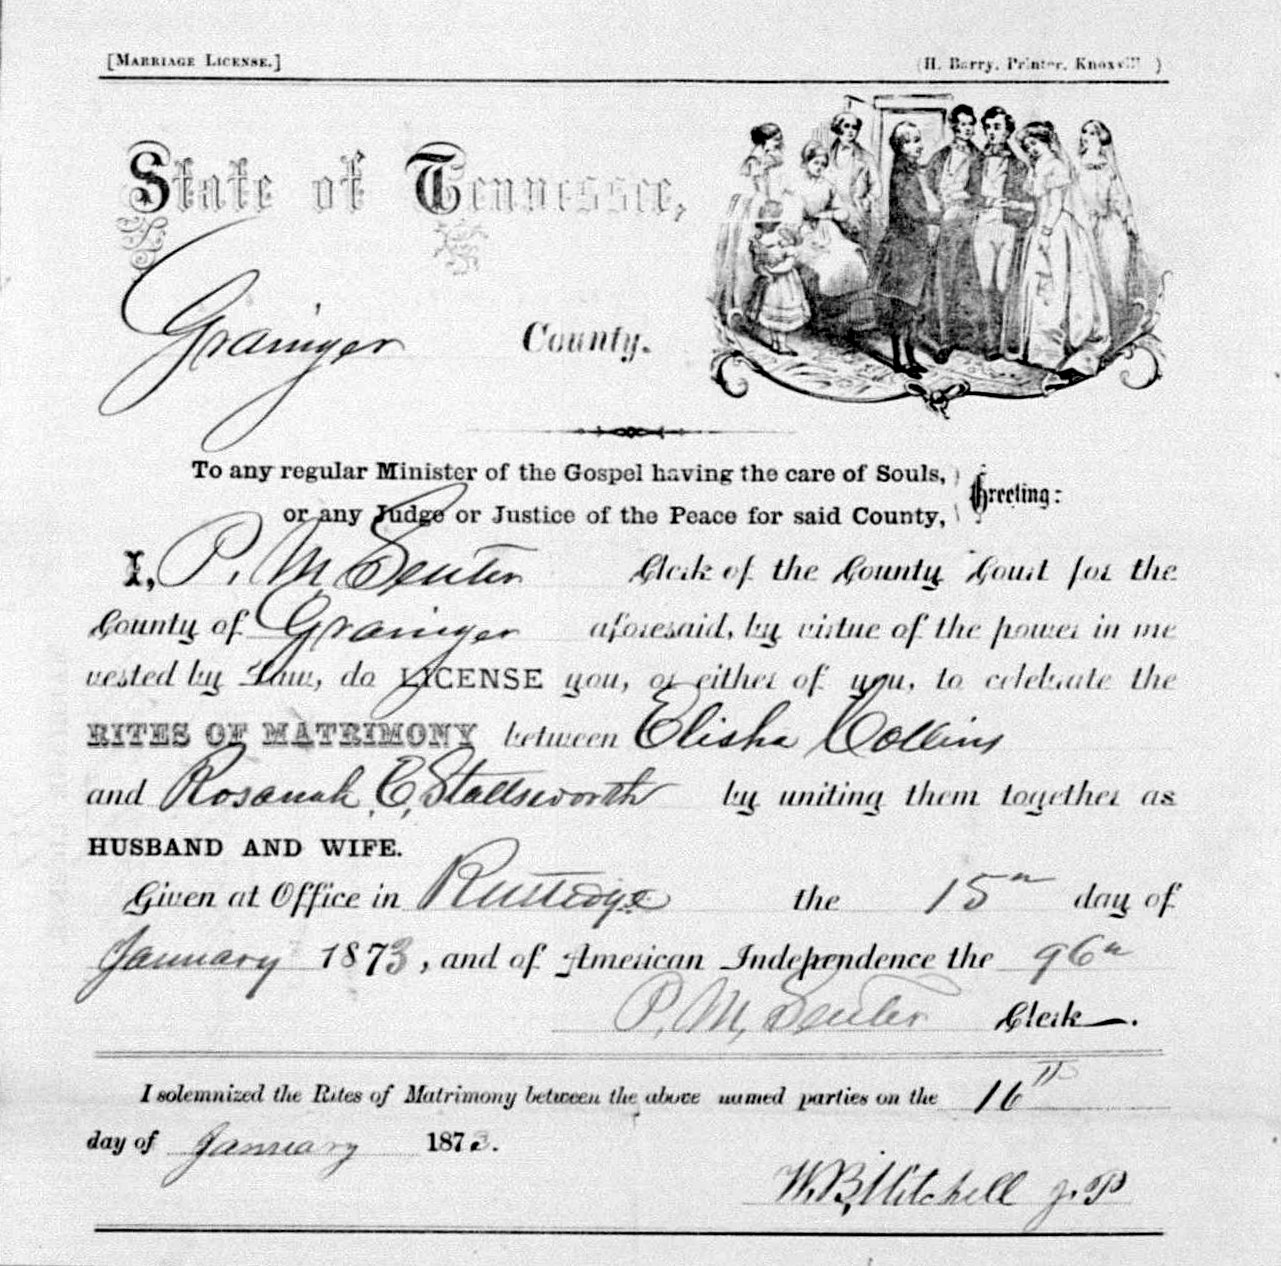 [MARRIAGE LICENSE.] (H. Barry, Printer, Knoxvill )
State of Tennessee,
Grainger County.
To any regular Minister of the Gospel having the care of Souls,
or any Judge or Justice of the Peace for said County, } Greeting:
I, P. M. Senter Clerk of the County Court for the
County of Grainger aforesaid, by virtue of the power in me
vested by Law, do LICENSE you, or either of you, to celebrate the
RITES OF MATRIMONY between Elisha Collins
and Rosanah C. Stallsworth by uniting them together as
HUSBAND AND WIFE.
Given at Office in Rutledge the 15th day of
January 1873, and of American Independence the 96th
P. M. Senter Clerk.
I solemnized the Rites of Matrimony between the above named parties on the 16th
day of January 1873.
W. B. Mitchell J. P